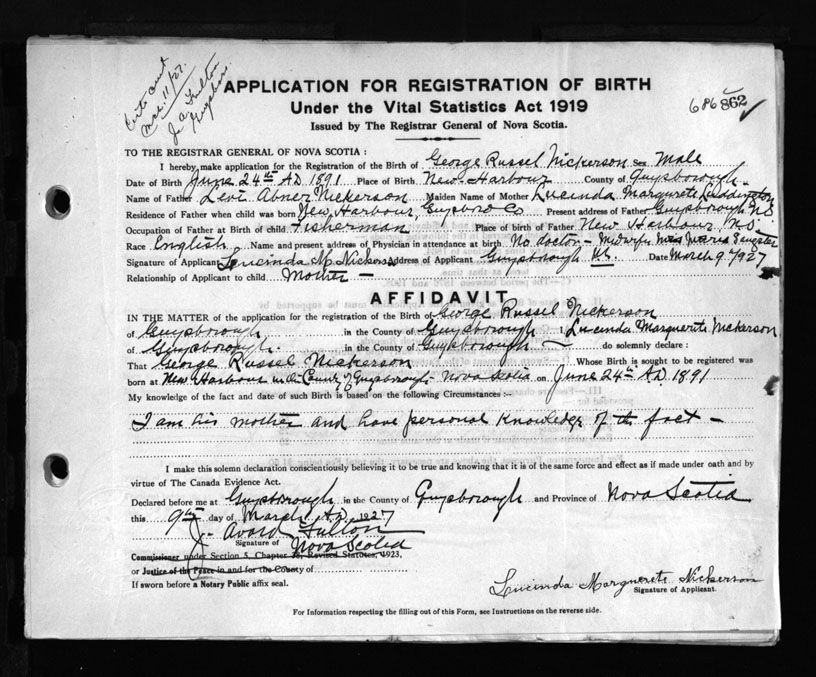 Mar. 11/27.
J. A. Fulton
Guysboro.
APPLICATION FOR REGISTRATION OF BIRTH
Under the Vital Statistics Act 1919
Issued by The Registrar General of Nova Scotia.
686862
TO THE REGISTRAR GENERAL OF NOVA SCOTIA :
I hereby make application for the Registration of the Birth of George Russel Nickerson Sex Male
Date of Birth June 24th AD 1891 Place of Birth New Harbour County of Guysborough
Name of Father Levi Abner Nickerson Maiden Name of Mother Lucinda Margurete
Residence of Father when child was born New Harbour, Guysboro Co Present address of Father Guysborough NS
Occupation of Father at Birth of child Fisherman Place of birth of Father New Harbour NS.
Race English Name and present address of Physician in attendance at birth No doctor - Midwife Sangster
Signature of Applicant Lucinda M. Nickerson Address of Applicant Guysborough N.S. Date March 9th 1927
Relationship of Applicant to child Mother -
AFFIDAVIT
IN THE MATTER of the application for the registration of the Birth of George Russel Nickerson
of Guysborough in the County of Guysborough I, Lucinda Marguerite Nickerson
of Guysborough in the County of Guysborough do solemnly declare :
That George Russel Nickerson Whose Birth is sought to be registered was
born at New Harbour in the County of Guysborough Nova Scotia on June 24th AD 1891
My knowledge of the fact and date of such Birth is based on the following Circumstances :-
I am his mother and have personal knowledge of the fact -
I make this solemn declaration conscientiously believing it to be true and knowing that it is of the same force and effect as if made under oath and by
virtue of The Canada Evidence Act.
Declared before me at Guysborough in the County of Guysborough and Province of Nova Scotia
this 9th day of March AD 1927
J. Avard Fulton
Signature of Nova Scotia
Commissioner under Section 5, Chapter Revised Statutes, 1923.
or Justice of the Peace in and for the County of
If sworn before a Notary Public affix seal.
Lucinda Marguerite Nickerson
Signature of Applicant.
For Information respecting the filling out of this Form, see Instructions on the reverse side.